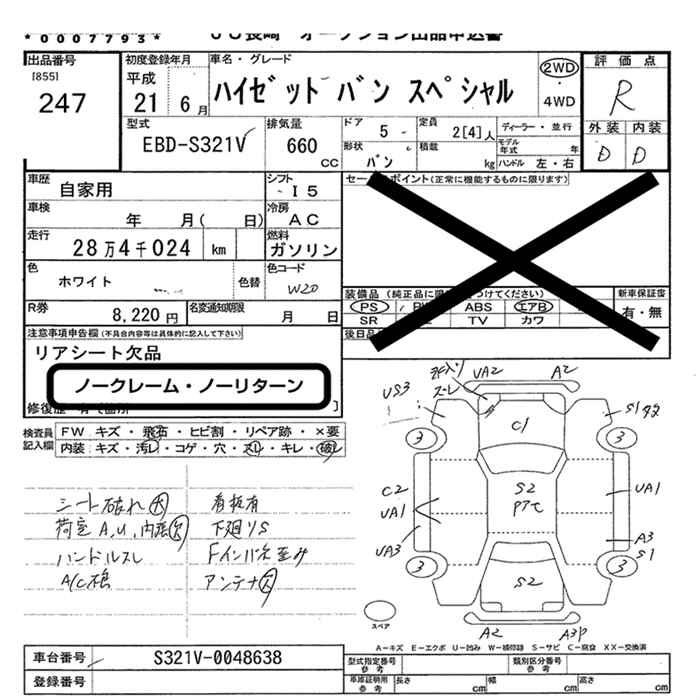 *0007793*
出品番号
[855]
247
初度登録年月
平成
21 6月
車名・グレード
ハイゼット バン スペシャル
2WD
・
4WD
評価点
R
型式
EBD-S321V
排気量
660
cc
ドア
5
定員
2[4]人
ディーラー・並行
形状
バン
積載
kg
モデル年式 年
ハンドル 左・右
外装 内装
D D
車歴
自家用
シフト
I5
車検
年 月( 日)
冷房
AC
走行
28万4千024 km
燃料
ガソリン
色
ホワイト
色替
色コード
W20
R券
8,220円
名変通知期限
月 日
ポイント(正常に機能するものに限ります)
装備品
PS
ABS
エアB
SR
TV
カワ
新車保証書
有・無
注意事項申告欄(不具合内容等は具体的に記入して下さい)
リアシート欠品
ノークレーム・ノーリターン
検査員記入欄
FW キズ・飛石・ヒビ割・リペア跡・×要
内装 キズ・汚レ・コゲ・穴・スレ・キレ・破レ
シート破れ大
看板有
下廻りS
ハンドルスレ
アンテナ欠
UA2
A2
US3
S1
3
3
C1
C2
UA1
UA3
S2
UA1
A3
S1
3
3
S2
A2
A3P
スペア
A-キズ E-エクボ U-凹み W-補修跡 S-サビ C-腐食 XX-交換済
車台番号
S321V-0048638
登録番号
型式指定番号
参考
類別区分番号
参考
車庫証明用
参考
長さ
cm
幅
cm
高さ
cm